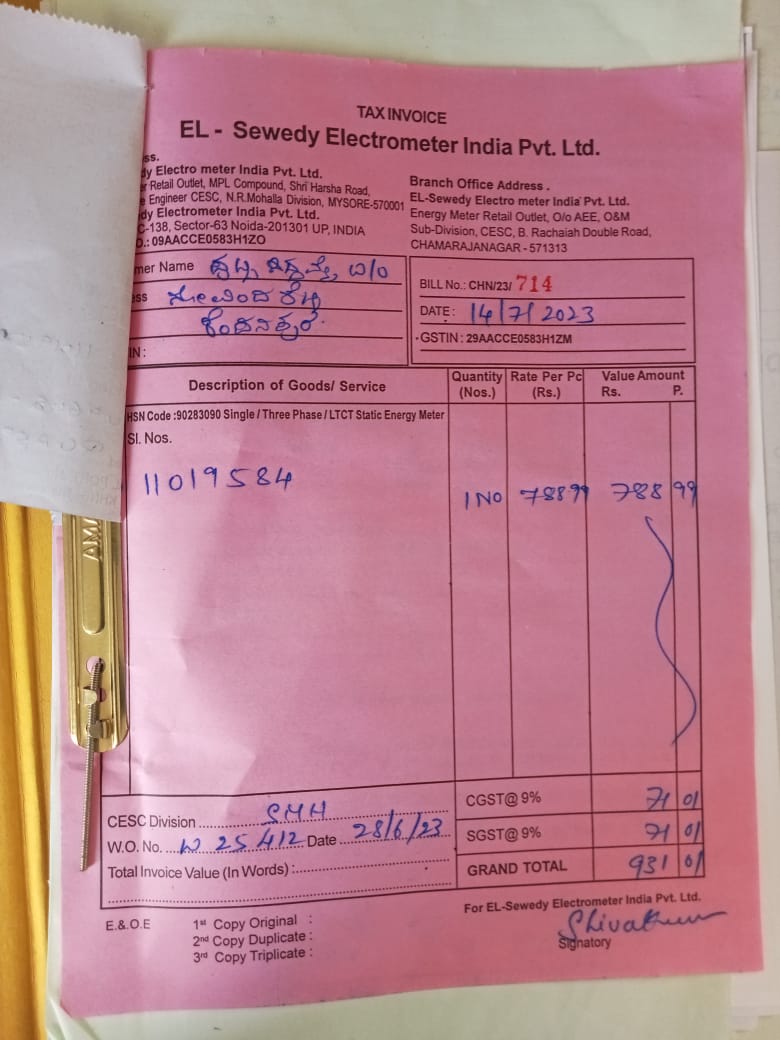 TAX INVOICE
EL - Sewedy Electrometer India Pvt. Ltd.
ss.
dy Electro meter India Pvt. Ltd.
r Retail Outlet, MPL Compound, Shri Harsha Road,
Engineer CESC, N.R.Mohalla Division, MYSORE-570001
dy Electrometer India Pvt. Ltd.
C-138, Sector-63 Noida-201301 UP, INDIA
.: 09AACCE0583H1ZO
Branch Office Address .
EL-Sewedy Electro meter India Pvt. Ltd.
Energy Meter Retail Outlet, O/o AEE, O&M
Sub-Division, CESC, B. Rachaiah Double Road,
CHAMARAJANAGAR - 571313
mer Name
ss
IN:
BILL No.: CHN/23/ 714
DATE: 14/7/2023
GSTIN: 29AACCE0583H1ZM
Description of Goods/ Service Quantity (Nos.) Rate Per Pc (Rs.) Value Amount Rs. P.
HSN Code :90283090 Single / Three Phase / LTCT Static Energy Meter
Sl. Nos.
11019584 1 NO 78899 788 99
CESC Division
W.O. No. 25412 Date 28/6/23
Total Invoice Value (In Words) :
CGST@ 9% 71 01
SGST@ 9% 71 01
GRAND TOTAL 931 01
E.&.O.E 1st Copy Original :
2nd Copy Duplicate :
3rd Copy Triplicate :
For EL-Sewedy Electrometer India Pvt. Ltd.
Signatory